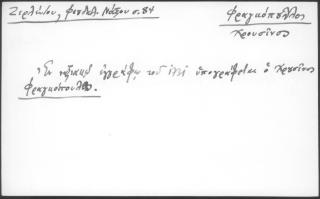 Ζερλέντου, Φεουδαλ. Νάξου σ. 84
Φραγκόπουλλος
Κρουσῖνος
Ἐν ναξιακῷ ἐγγράφῳ τοῦ ὑπογράφεται ὁ Κρουσῖνος
Φραγκόπουλος.